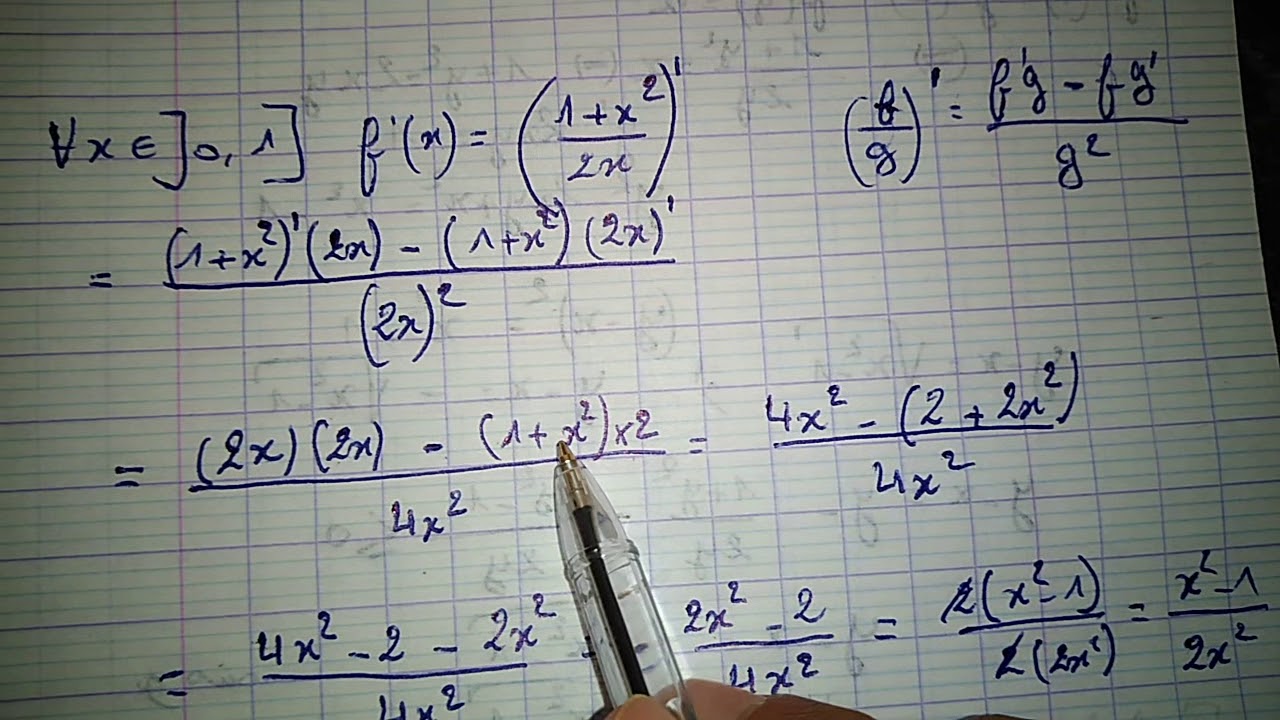 ∀x ∈ ]0, 1] f'(x) = ((1+x²)/(2x))' (f/g)' = (f'g - fg')/g²
= ((1+x²)'(2x) - (1+x²)(2x)')/(2x)²
= ((2x)(2x) - (1+x²)×2)/4x² = (4x² - (2 + 2x²))/4x²
= (4x² - 2 - 2x²)/4x² = (2x² - 2)/4x² = 2(x² - 1)/2(2x²) = (x² - 1)/2x²